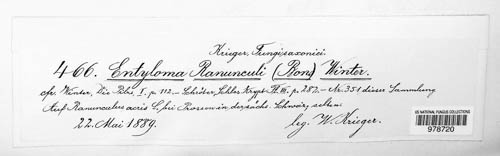 Krieger, Fungi saxonici.
466. Entyloma Ranunculi (Bon) Winter.
cfr. Winter, Die Pilze, I. p. 112. – Schröter, Schles. Krypt. Fl. III. p. 282. – Nr. 351 dieser Sammlung
Auf Ranunculus acris L, bei in der sächs. Schweiz, selten.
22. Mai 1889. leg. W. Krieger.
US NATIONAL FUNGUS COLLECTIONS
978720